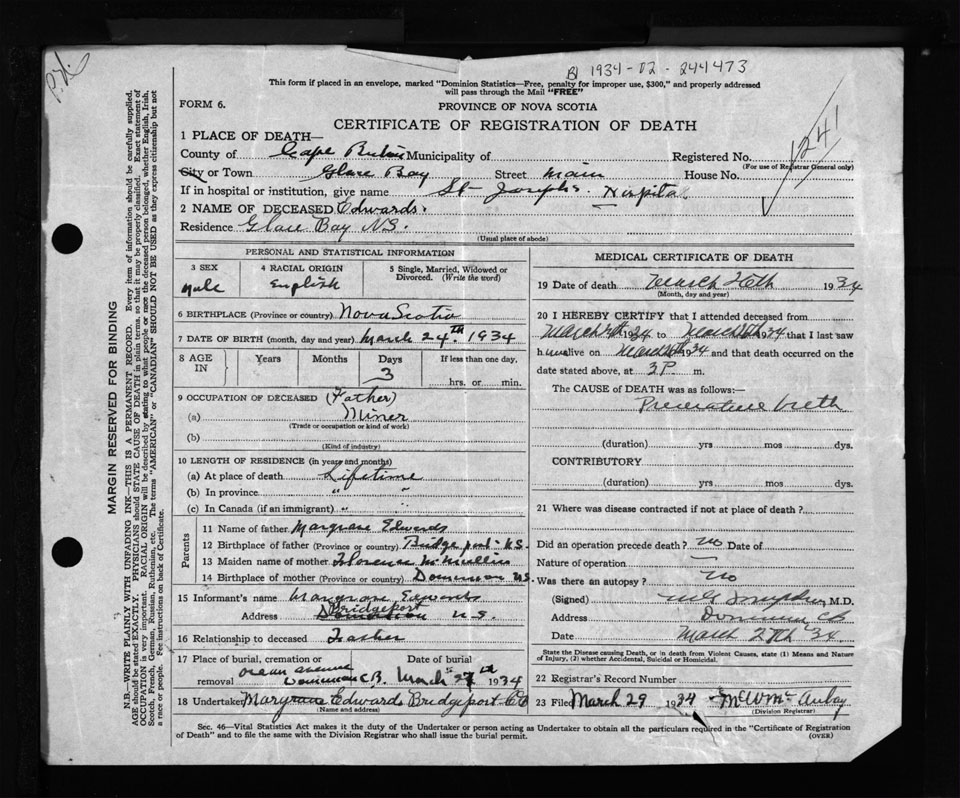 P.N.
1934-02-244473
This form if placed in an envelope, marked "Dominion Statistics—Free, penalty for improper use, $300," and properly addressed
will pass through the Mail "FREE"
FORM 6.
PROVINCE OF NOVA SCOTIA
CERTIFICATE OF REGISTRATION OF DEATH
1241
MARGIN RESERVED FOR BINDING
N.B.—WRITE PLAINLY WITH UNFADING INK—THIS IS A PERMANENT RECORD. Every item of information should be carefully supplied.
AGE should be stated EXACTLY. PHYSICIANS should STATE CAUSE OF DEATH in plain terms, so that it may be properly classified. Exact statement of
OCCUPATION is very important. RACIAL ORIGIN will be described by stating to what people or race the deceased person belonged, whether English, Irish,
Scotch, French, German, Russian, Ruthenian, etc. The terms "AMERICAN" or "CANADIAN" SHOULD NOT BE USED as they express citizenship but not
a race or people. See instructions on back of Certificate.
1 PLACE OF DEATH—
County of Cape Breton Municipality of Registered No.
(For use of Registrar General only)
City or Town Glace Bay Street Main House No.
If in hospital or institution, give name St Josephs. Hospital
2 NAME OF DECEASED Edwards.
Residence Glace Bay N.S.
(Usual place of abode)
PERSONAL AND STATISTICAL INFORMATION
3 SEX Male
4 RACIAL ORIGIN English
5 Single, Married, Widowed or Divorced. (Write the word)
6 BIRTHPLACE (Province or country) Nova Scotia
7 DATE OF BIRTH (month, day and year) March 24th 1934
8 AGE IN Years Months Days 3 If less than one day, hrs. or min.
9 OCCUPATION OF DECEASED (Father)
(a) Miner
(Trade or occupation or kind of work)
(b)
(Kind of industry)
10 LENGTH OF RESIDENCE (in years and months)
(a) At place of death Lifetime
(b) In province " "
(c) In Canada (if an immigrant) " "
Parents
11 Name of father Margrave Edwards
12 Birthplace of father (Province or country) Bridgeport N.S.
13 Maiden name of mother Florence
14 Birthplace of mother (Province or country) Dominion N.S.
15 Informant's name Margrave Edwards
Address Dominion Bridgeport N.S.
16 Relationship to deceased Father
17 Place of burial, cremation or removal Ocean Avenue Dominion C.B. Date of burial March 27th 1934
18 Undertaker Margrave Edwards Bridgeport C.B.
(Name and address)
MEDICAL CERTIFICATE OF DEATH
19 Date of death March 1934
(Month, day and year)
20 I HEREBY CERTIFY that I attended deceased from
March 1934 to March 1934 that I last saw
h im alive on March 1934 and that death occurred on the
date stated above, at 3 P. m.
The CAUSE OF DEATH was as follows:—
Premature birth
(duration) yrs mos dys.
CONTRIBUTORY
(duration) yrs mos dys.
21 Where was disease contracted if not at place of death?
Did an operation precede death? No Date of
Nature of operation
Was there an autopsy? No
(Signed) M.D.
Address Dominion CB
Date March 27th 34
State the Disease causing Death, or in death from Violent Causes, state (1) Means and Nature
of Injury, (2) whether Accidental, Suicidal or Homicidal.
22 Registrar's Record Number
23 Filed March 29 1934
(Division Registrar)
Sec. 46—Vital Statistics Act makes it the duty of the Undertaker or person acting as Undertaker to obtain all the particulars required in the "Certificate of Registration
of Death" and to file the same with the Division Registrar who shall issue the burial permit.
(OVER)